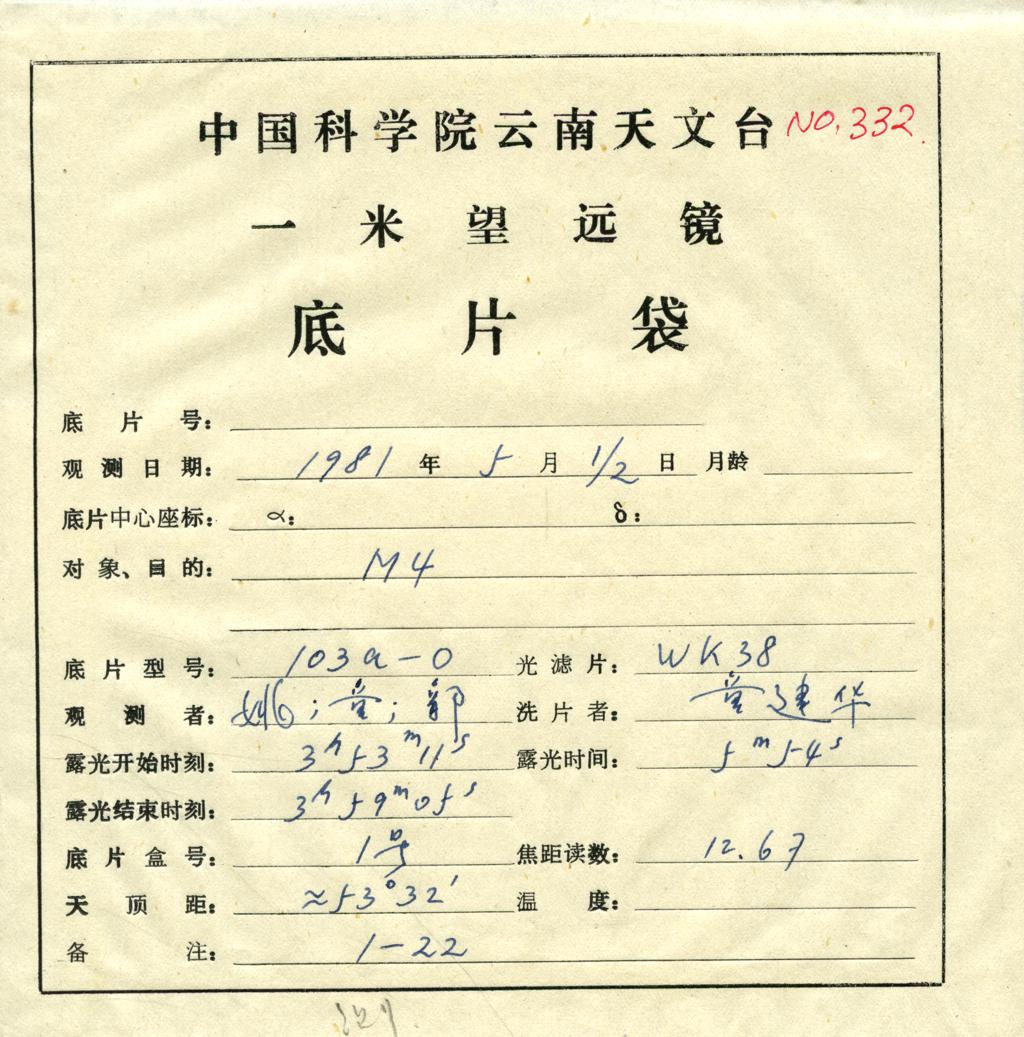 中国科学院云南天文台 NO.332
一米望远镜
底片袋
底片号：
观测日期： 1981 年 5 月 1/2 日 月龄
底片中心座标： α： δ：
对象、目的： M4
底片型号： 103a-O 光滤片： WK38
观测者： 姚；童；郭 洗片者： 童建华
露光开始时刻： 3h53m11s 露光时间： 5m54s
露光结束时刻： 3h59m05s
底片盒号： 1号 焦距读数： 12.67
天顶距： ≈53°32′ 温度：
备注： 1-22